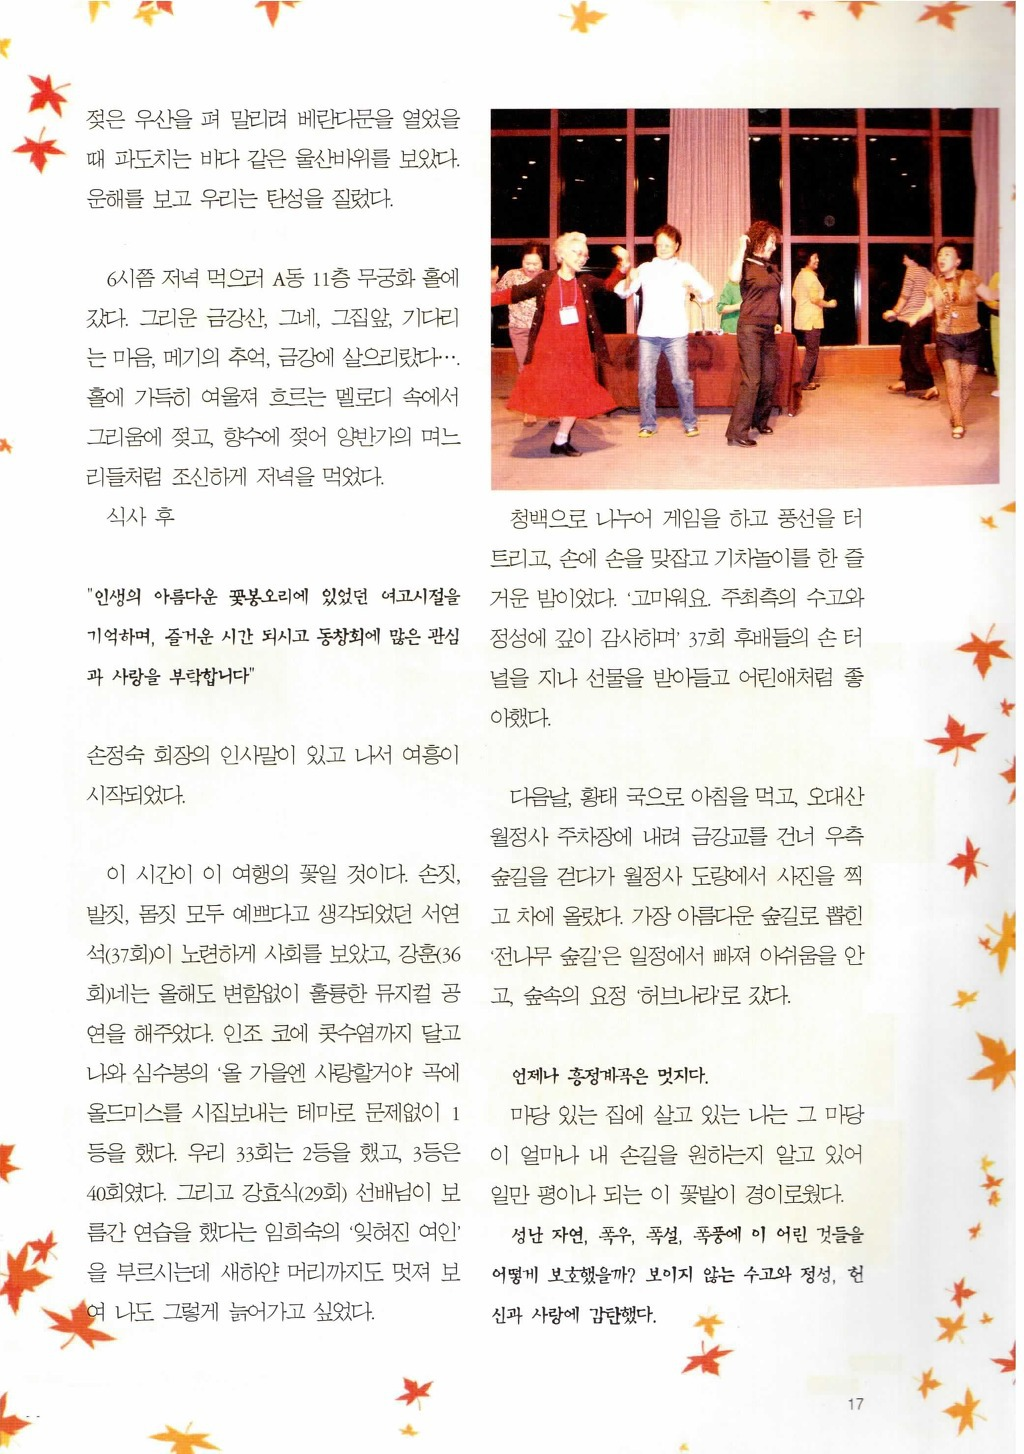 젖은 우산을 펴 말리려 베란다문을 열었을
때 파도치는 바다 같은 울산바위를 보았다.
운해를 보고 우리는 탄성을 질렀다.
6시쯤 저녁 먹으러 A동 11층 무궁화 홀에
갔다. 그리운 금강산, 그네, 그집앞, 기다리
는 마음, 메기의 추억, 금강에 살으리랐다….
홀에 가득히 여울져 흐르는 멜로디 속에서
그리움에 젖고, 향수에 젖어 양반가의 며느
리들처럼 조신하게 저녁을 먹었다.
식사 후
"인생의 아름다운 꽃봉오리에 있었던 여고시절을
기억하며, 즐거운 시간 되시고 동창회에 많은 관심
과 사랑을 부탁합니다"
손정숙 회장의 인사말이 있고 나서 여흥이
시작되었다.
이 시간이 이 여행의 꽃일 것이다. 손짓,
발짓, 몸짓 모두 예쁘다고 생각되었던 서연
석(37회)이 노련하게 사회를 보았고, 강훈(36
회)네는 올해도 변함없이 훌륭한 뮤지컬 공
연을 해주었다. 인조 코에 콧수염까지 달고
나와 심수봉의 '올 가을엔 사랑할거야' 곡에
올드미스를 시집보내는 테마로 문제없이 1
등을 했다. 우리 33회는 2등을 했고, 3등은
40회였다. 그리고 강효식(29회) 선배님이 보
름간 연습을 했다는 임희숙의 '잊혀진 여인'
을 부르시는데 새하얀 머리까지도 멋져 보
여 나도 그렇게 늙어가고 싶었다.
청백으로 나누어 게임을 하고 풍선을 터
트리고, 손에 손을 맞잡고 기차놀이를 한 즐
거운 밤이었다. '고마워요. 주최측의 수고와
정성에 깊이 감사하며' 37회 후배들의 손 터
널을 지나 선물을 받아들고 어린애처럼 좋
아했다.
다음날, 황태 국으로 아침을 먹고, 오대산
월정사 주차장에 내려 금강교를 건너 우측
숲길을 걷다가 월정사 도량에서 사진을 찍
고 차에 올랐다. 가장 아름다운 숲길로 뽑힌
'전나무 숲길'은 일정에서 빠져 아쉬움을 안
고, 숲속의 요정 '허브나라'로 갔다.
언제나 흥정계곡은 멋지다.
마당 있는 집에 살고 있는 나는 그 마당
이 얼마나 내 손길을 원하는지 알고 있어
일만 평이나 되는 이 꽃밭이 경이로웠다.
성난 자연, 폭우, 폭설, 폭풍에 이 어린 것들을
어떻게 보호했을까? 보이지 않는 수고와 정성, 헌
신과 사랑에 감탄했다.
17